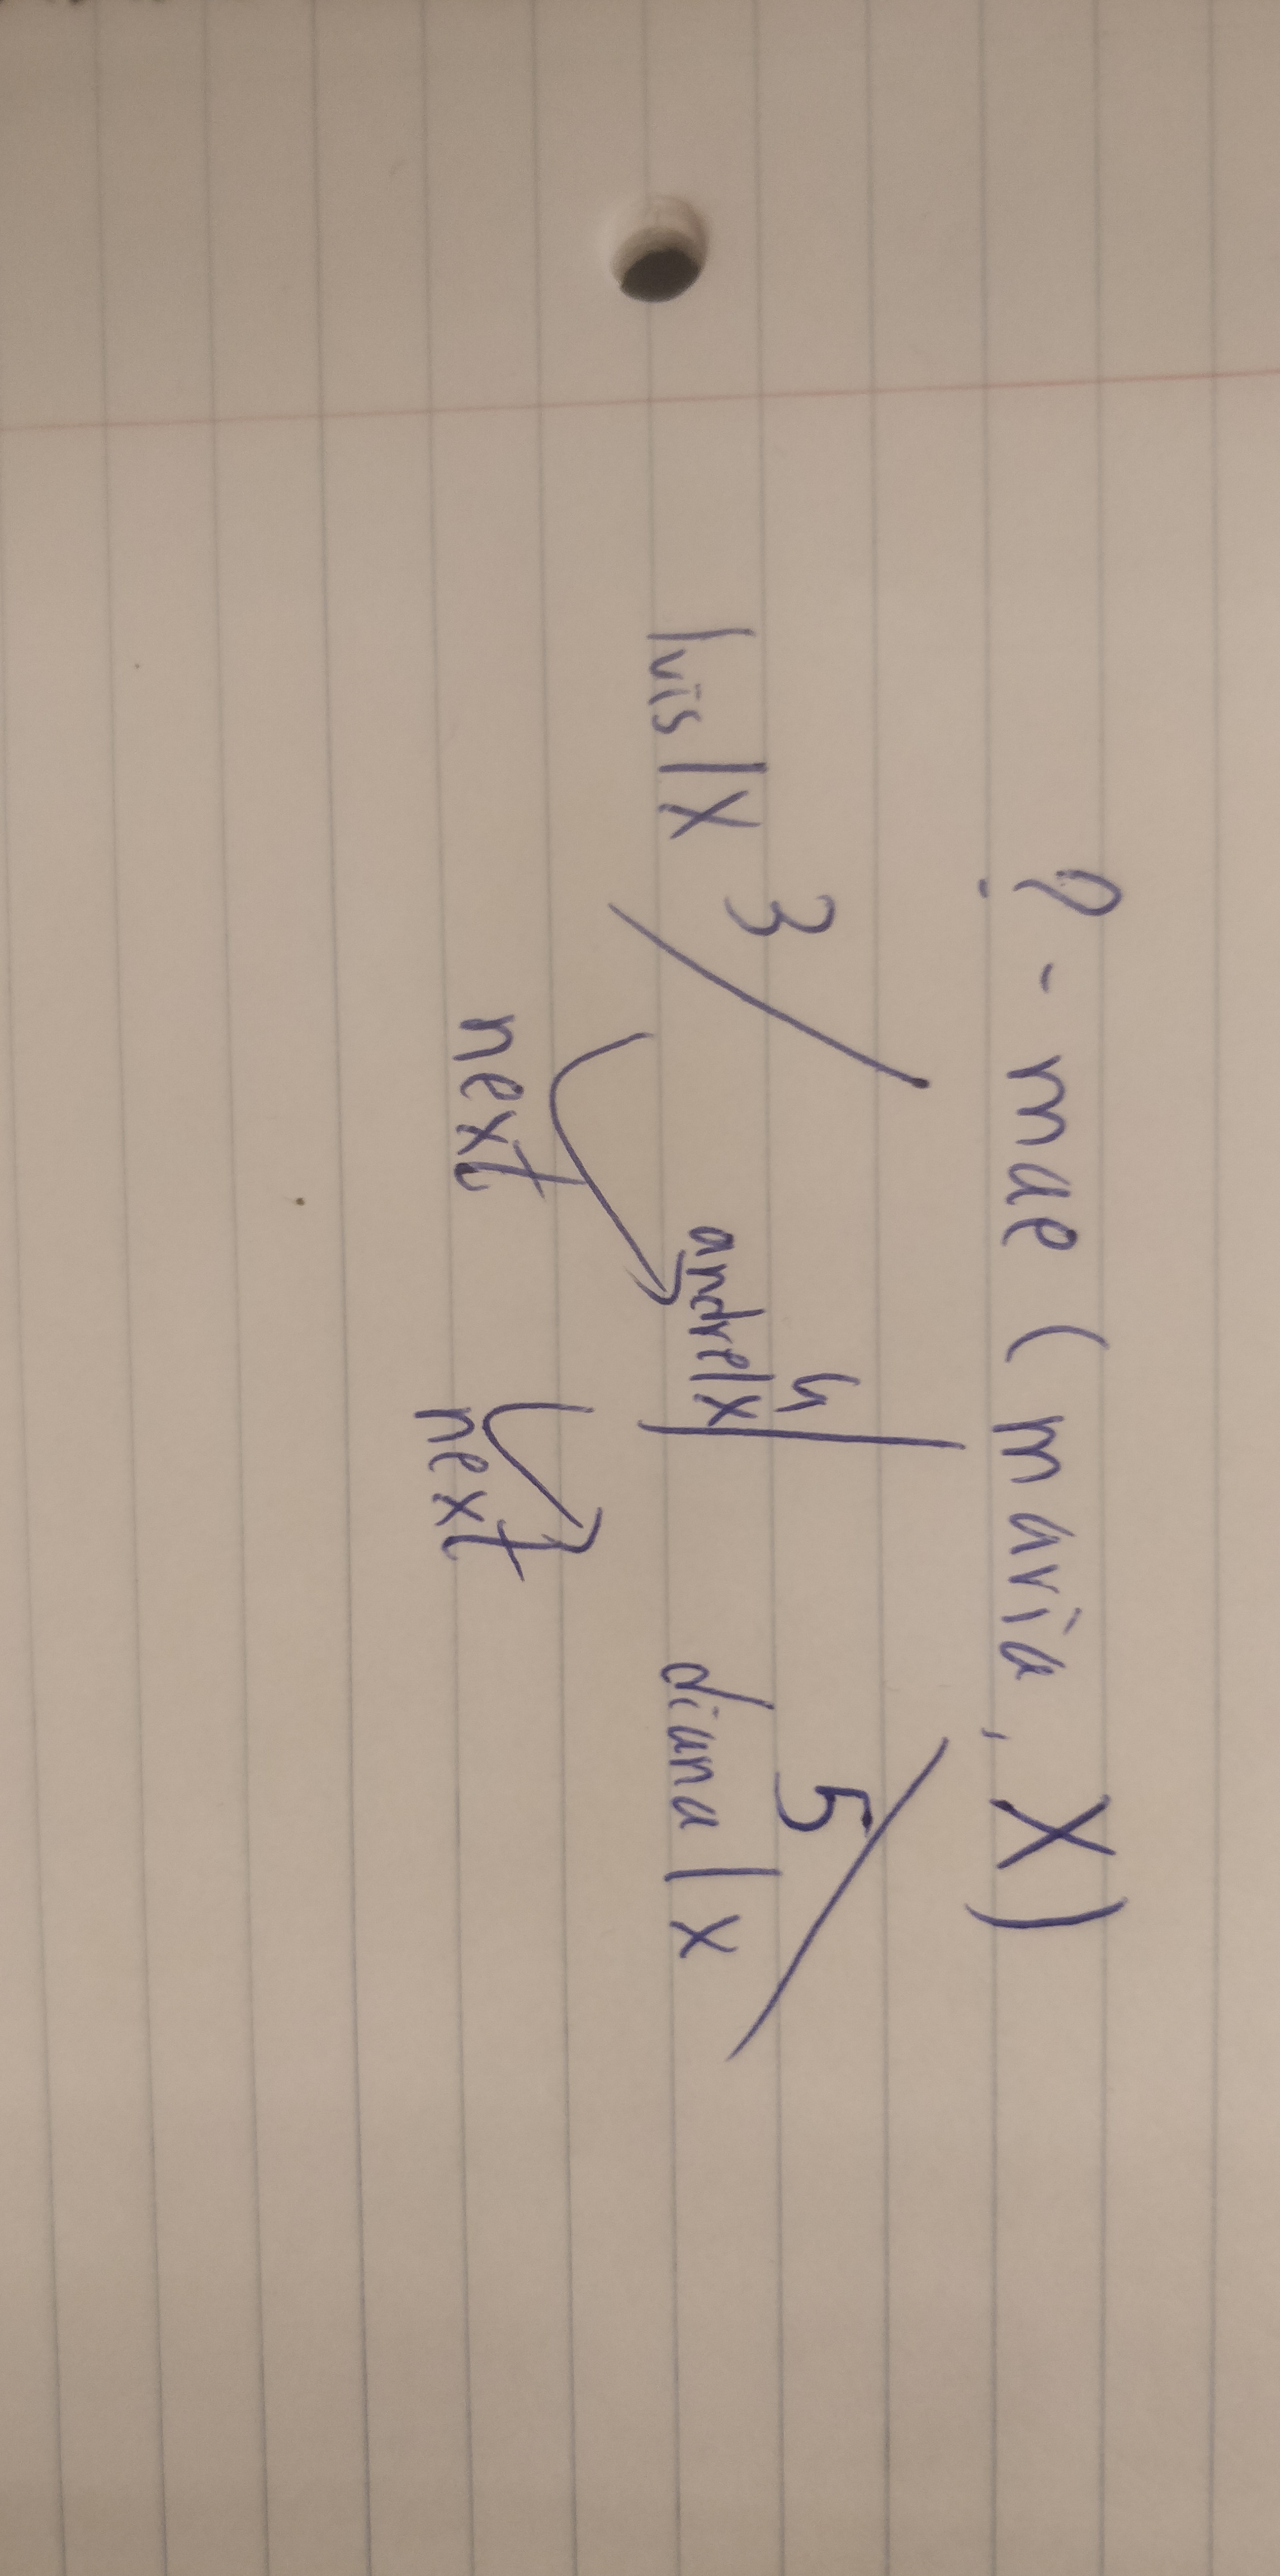 ?- mae ( maria, X)
3 4 5
luis | X andre | X diana | X
next next